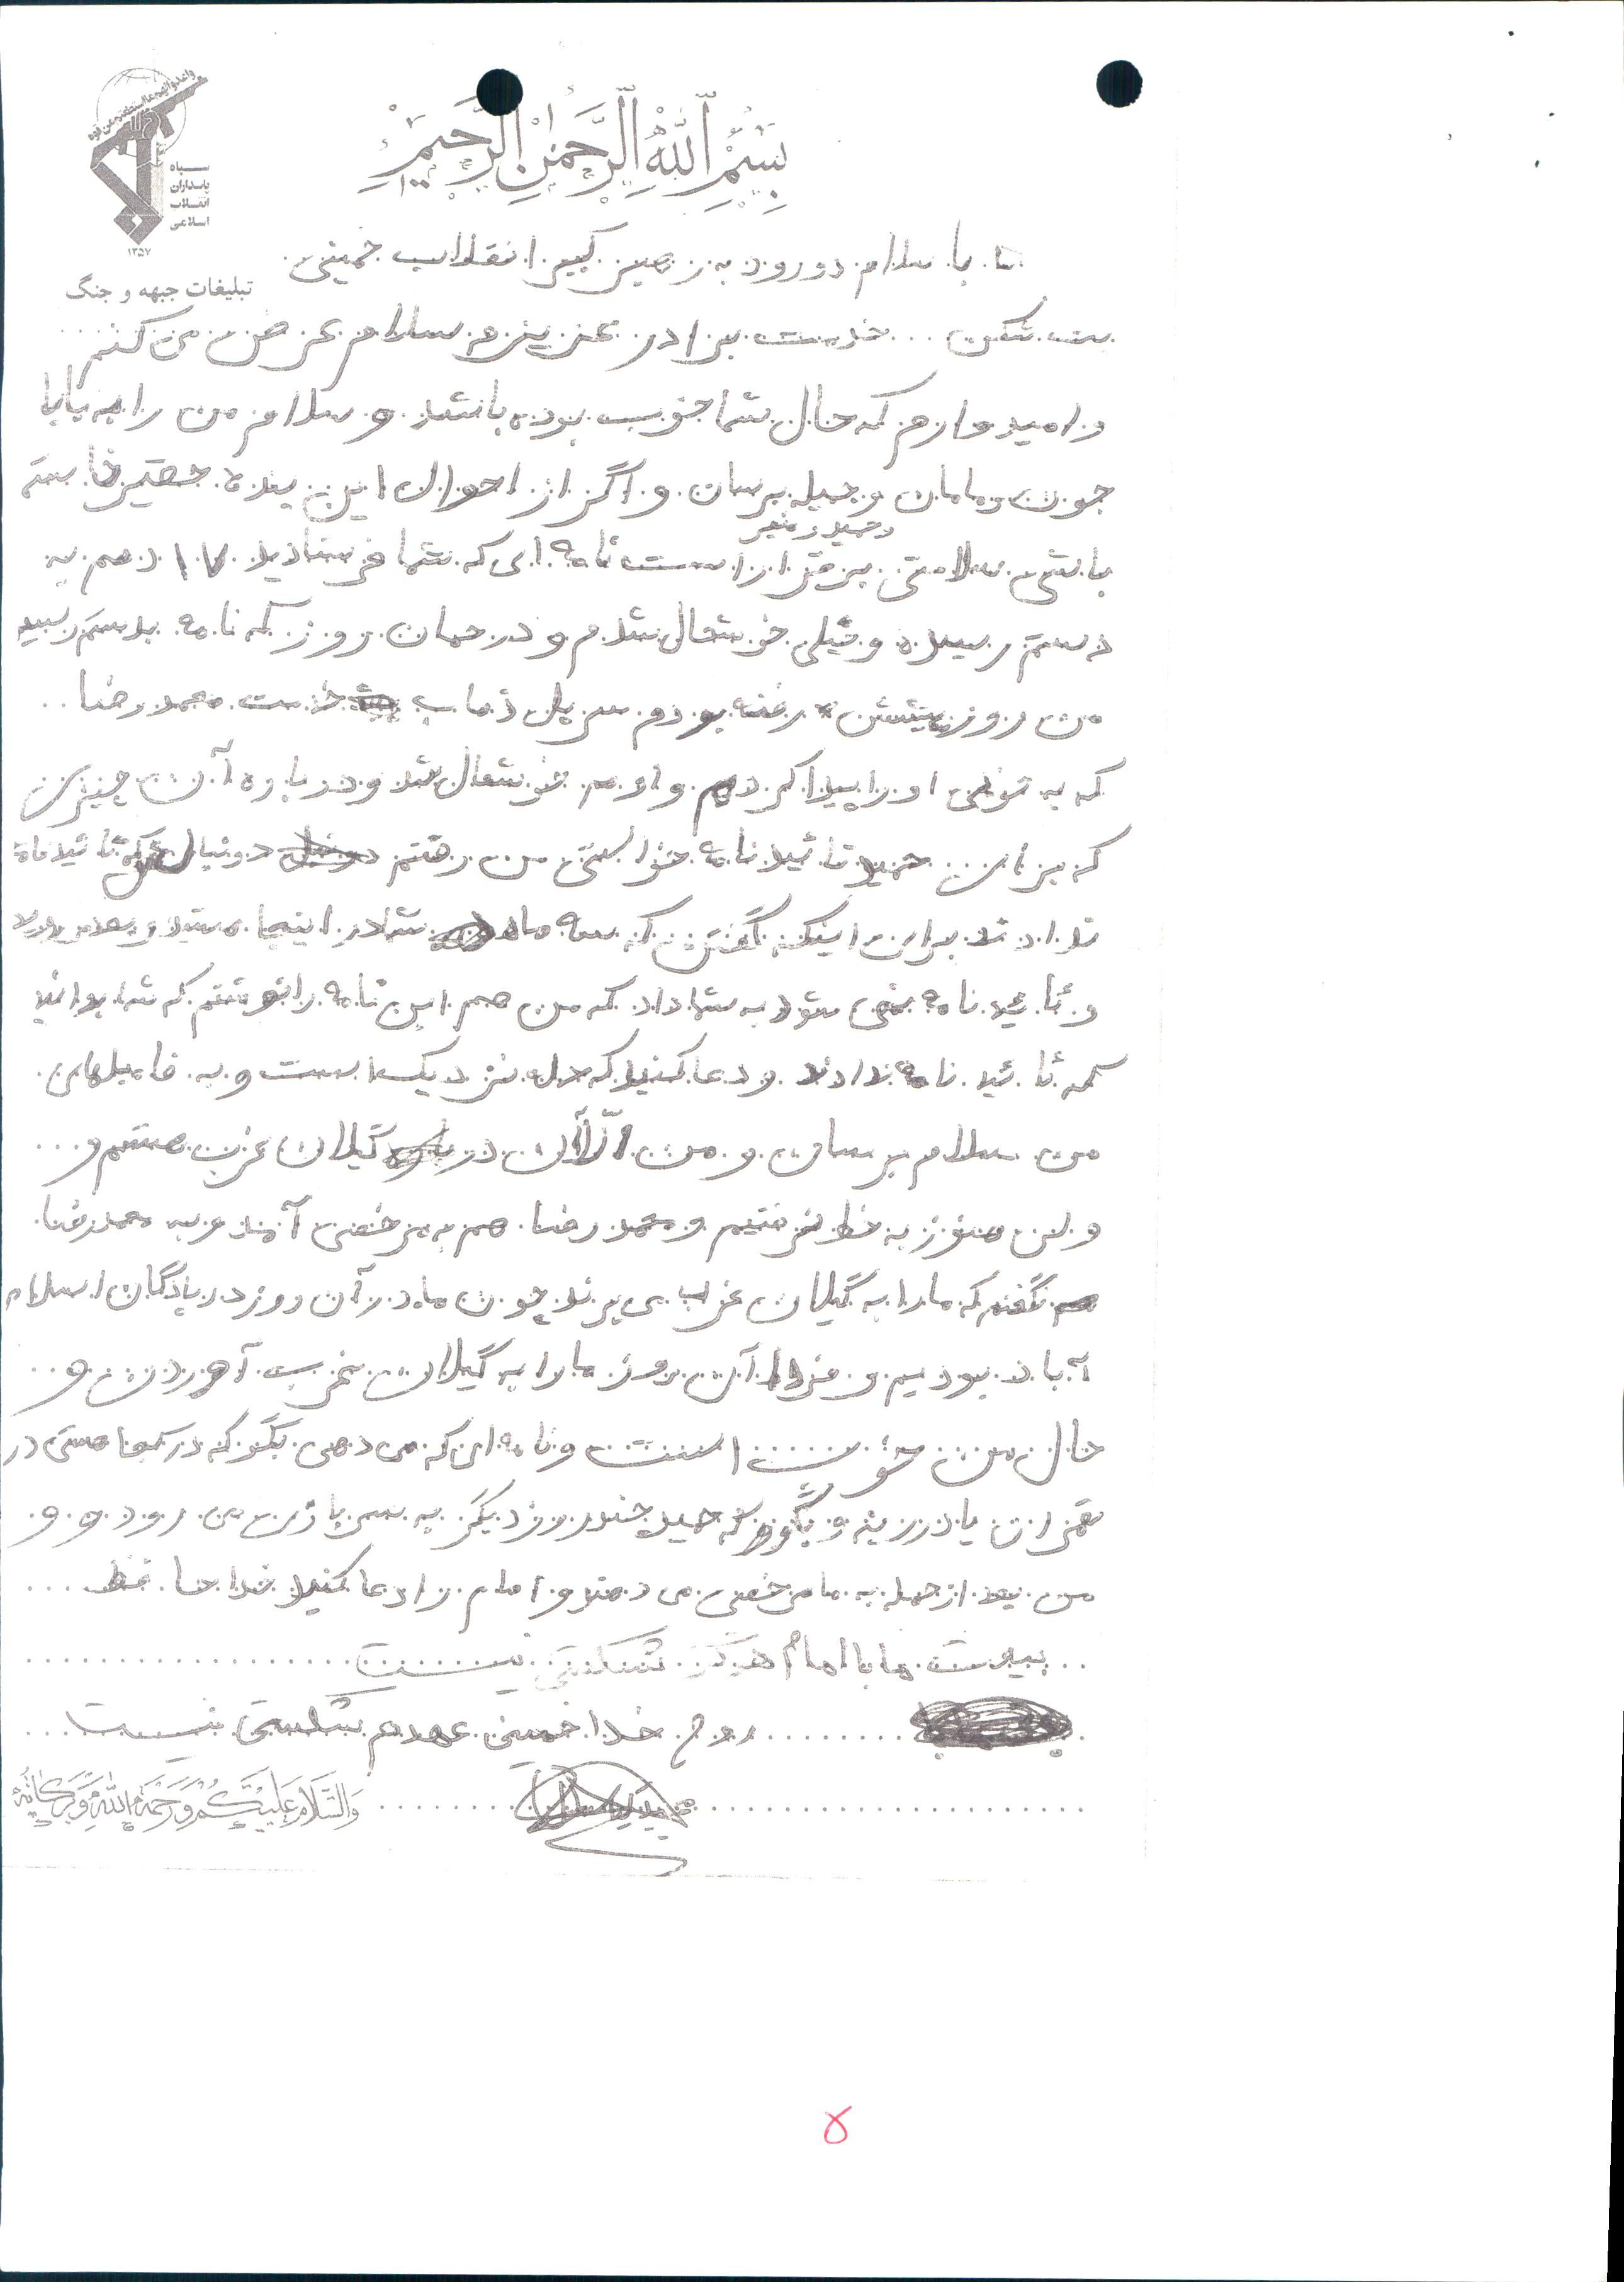 بسم الله الرحمن الرحیم
سپاه
پاسداران
انقلاب
اسلامی
۱۳۵۷
تبلیغات جبهه و جنگ
با سلام دورود به رهبر کبیر انقلاب خمینی
بت شکن ... خدمت برادر عزیزم سلام عرض می کنم
و امیدوارم که حال شما خوب بوده باشد و سلام من را به بابا
جون و مامان و جمیله برسان و اگر از احوال این بنده حقیر خاسته
و حمید و منیر
باشی سلامتی برقرار است نامه ای که شما فرستادید ۱۷ دهم به
دستم رسیده و خیلی خوشحال شدم و در همان روز که نامه بدستم رسید
من روز پیشش رفته بودم سر پل ذهاب خدمت محمد رضا
که به خوبی او را پیدا کردم و او هم خوشحال شد و درباره آن چیزی
که برای حمید تائید نامه خواستی من رفتم دونبال تائید نامه
ندادند برای اینکه گفتن که سه ماه شما در اینجا هستید و
و تائید نامه نمی شود به شما داد که من هم این نامه را نوشتم که شما بدانید
که تائید نامه ندادند و دعا کنید که حمله نزدیک است و به فامیلهای
من سلام برسان و من الآن در گیلان غرب هستم و ...
ولی هنوز به خط نرفتیم و محمد رضا هم به مرخصی آمد و به محمد رضا
نگفتم که ما را به گیلان غرب می برند چون ما در آن روز در پادگان اسلام
آباد بودیم و فردا آن روز ما را به گیلان غرب آوردن و
حال من خوب است و نامه ای که می دهی بگو که در کجا هستی در
تهران یا در رینه و بگو که حمید چند روز دیگر به سربازی می رود و و
من بعد از حمله به ما مرخصی می دهند و امام را دعا کنید خدا حافظ ...
.. بیعت ما با امام هرگز شکستنی نیست
روح خدا خمینی عهدم شکستی نیست ...
والسلام علیکم ورحمة الله وبرکاته
۵